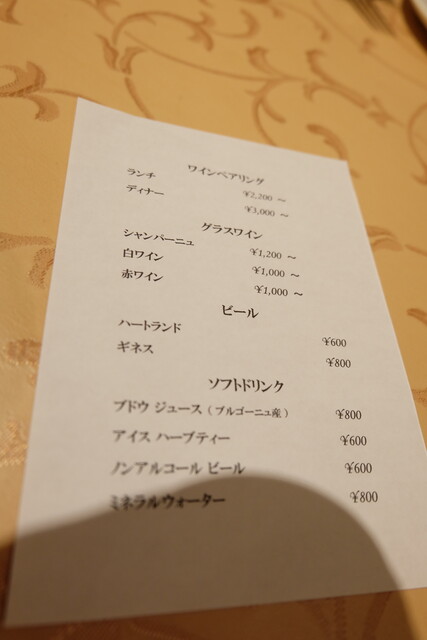 ワインペアリング
ランチ ¥2,200 ～
ディナー ¥3,000 ～
グラスワイン
シャンパーニュ ¥1,200 ～
白ワイン ¥1,000 ～
赤ワイン ¥1,000 ～
ビール
ハートランド ¥600
ギネス ¥800
ソフトドリンク
ブドウ ジュース ( ブルゴーニュ産 ) ¥800
アイス ハーブティー ¥600
ノンアルコール ビール ¥600
ミネラルウォーター ¥800